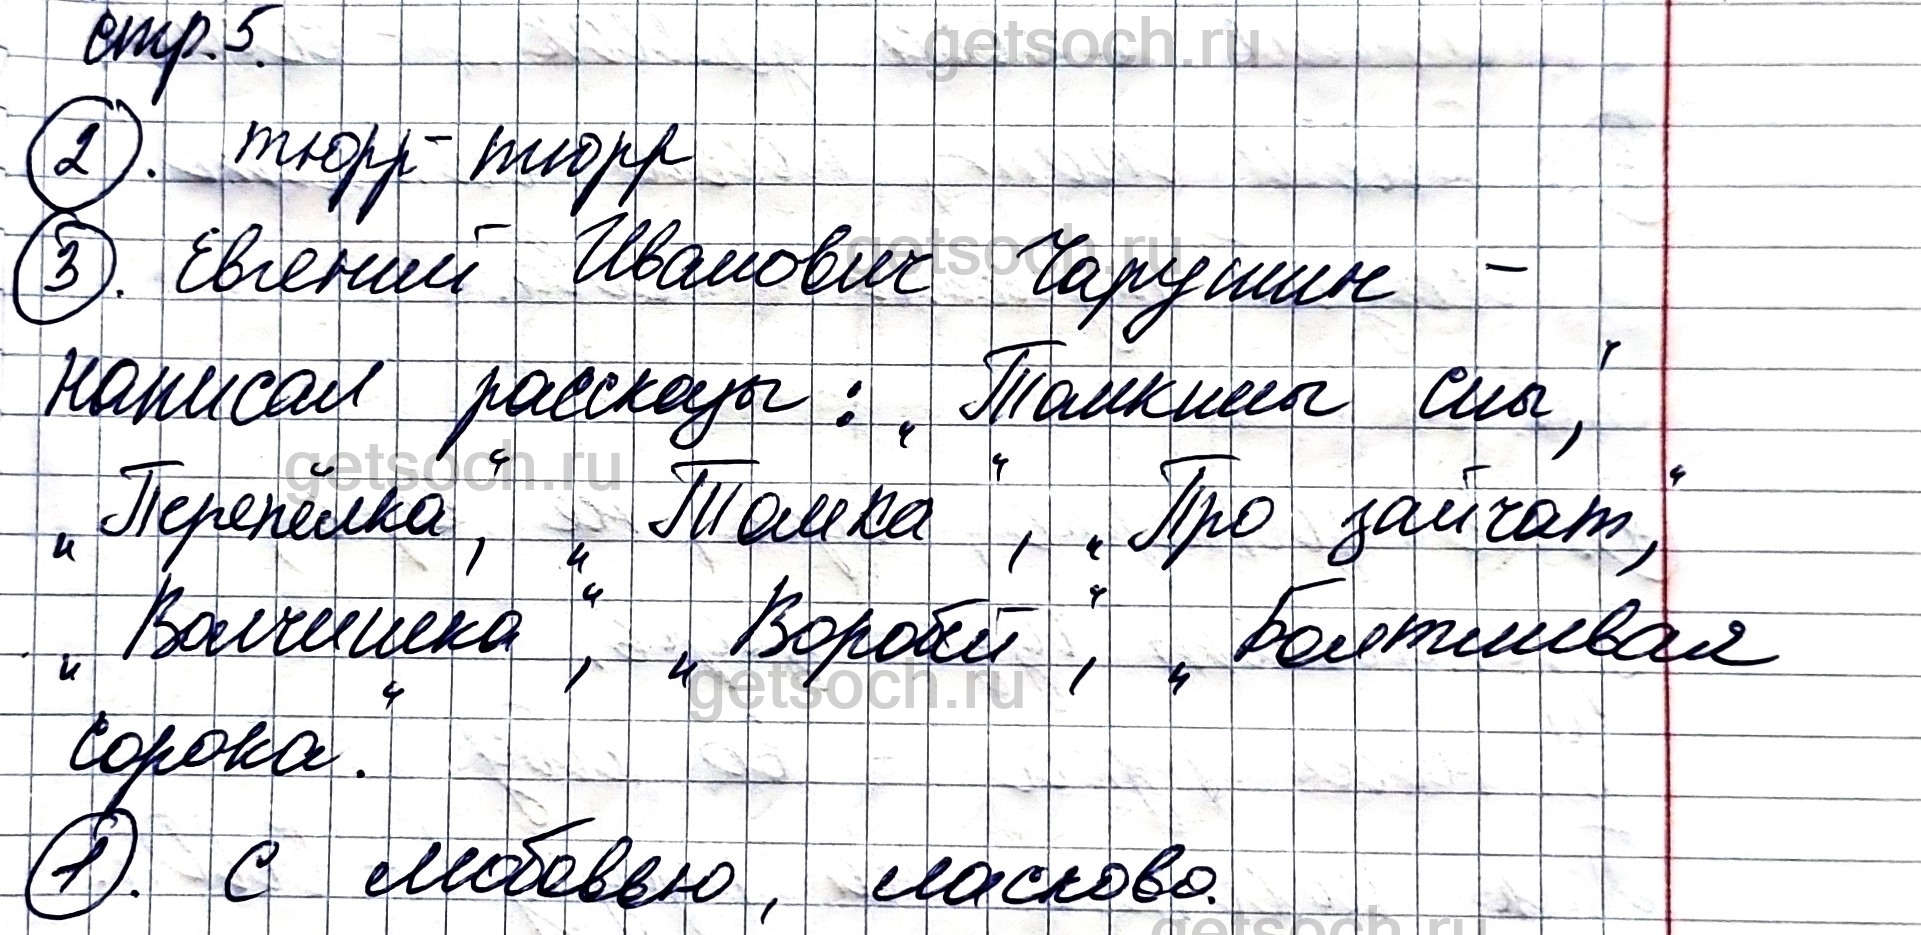 стр. 5.
getsoch.ru
2. тюрр-тюрр
3. Евгений Иванович Чарушин -
getsoch.ru
написал рассказы: „Томкины сны",
getsoch.ru
„Перепёлка", „Томка", „Про зайчат",
„Волчишка", „Воробей", „Болтливая
getsoch.ru
сорока."
1. С любовью, ласково.
getsoch.ru